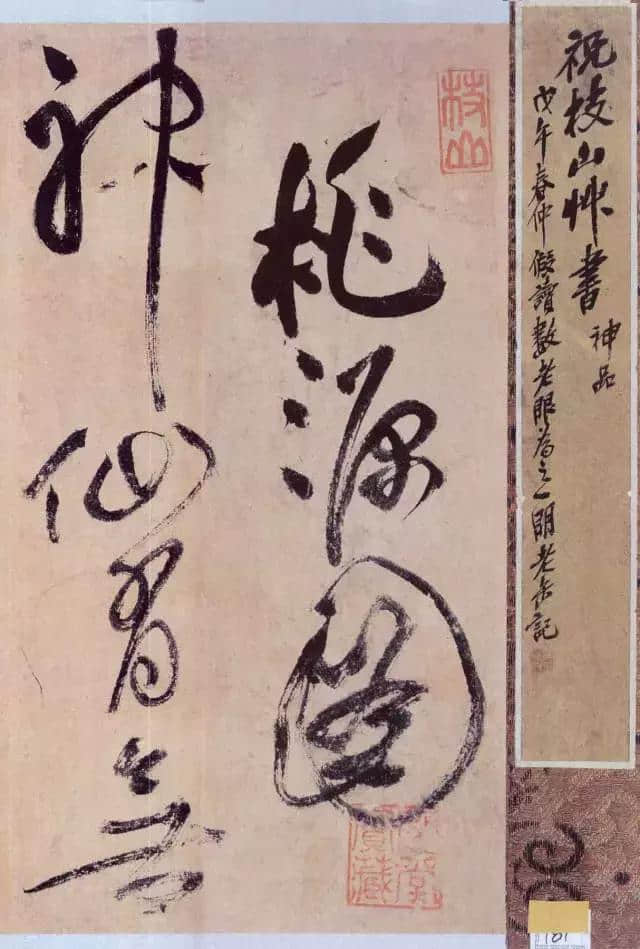 祝枝山艸書 神品
戊午春仲假讀數老眼為之一明老缶記
枝山
桃源圖
神仙有無
181